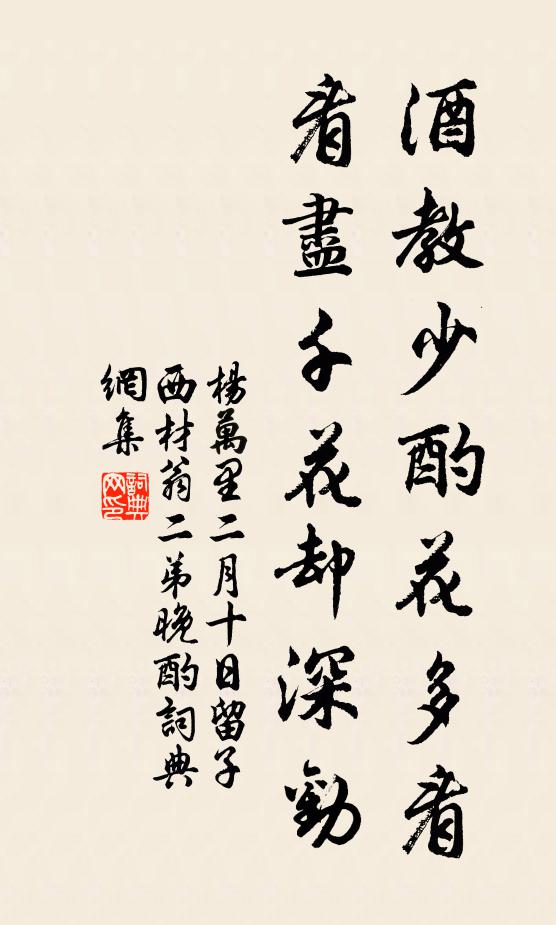 酒教少酌花多看
看盡千花却深勸
楊萬里二月十日留子
西材翁二弟晚酌詞典
網集
詞典網印